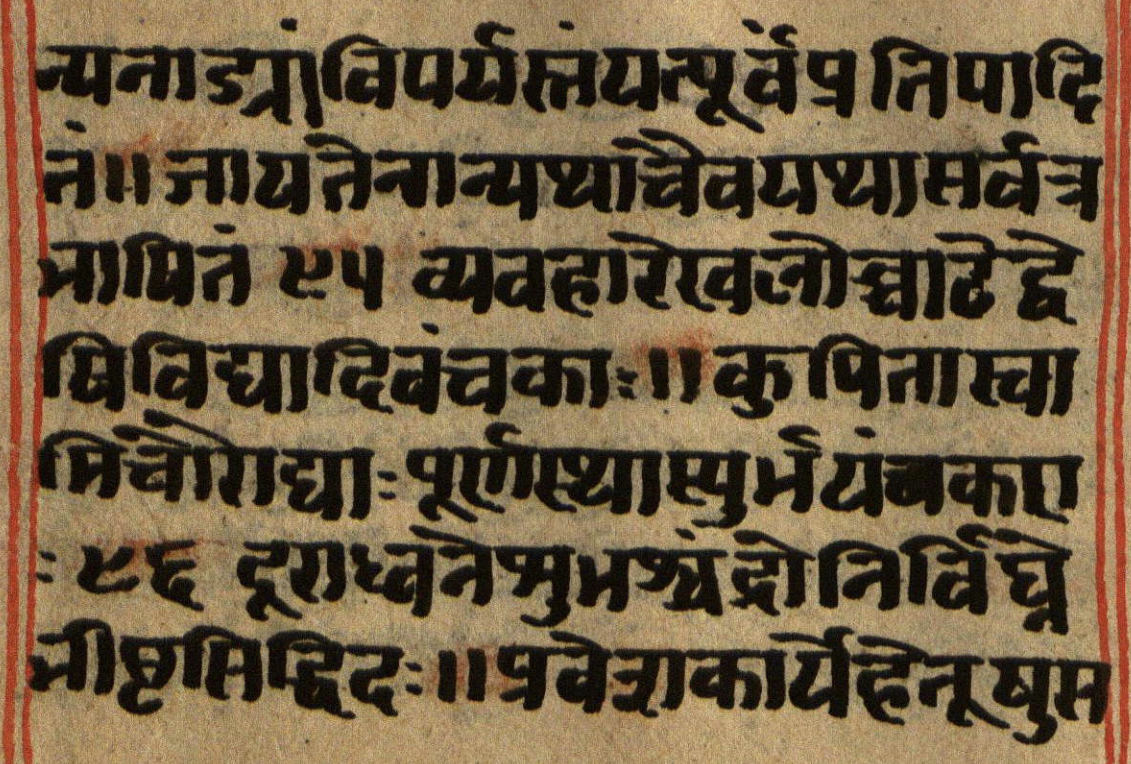 न्यनाड्यांविपर्यस्तंयत्पूर्वंप्रतिपादि
तं॥जायतेनान्यथाचैवयथासर्वत्र
भाषितं ९५ व्यवहारेखलोच्चाटेद्वे
षिविद्यादिवंचकाः॥कुपितास्वा
मिचौराद्याःपूर्णस्थास्युर्भयंचकरा
ः ९६ दूराध्वनेशुभश्चंद्रोनिर्विघ्ने
भीष्टसिद्धिदः॥प्रवेशकार्यहेतूषुस